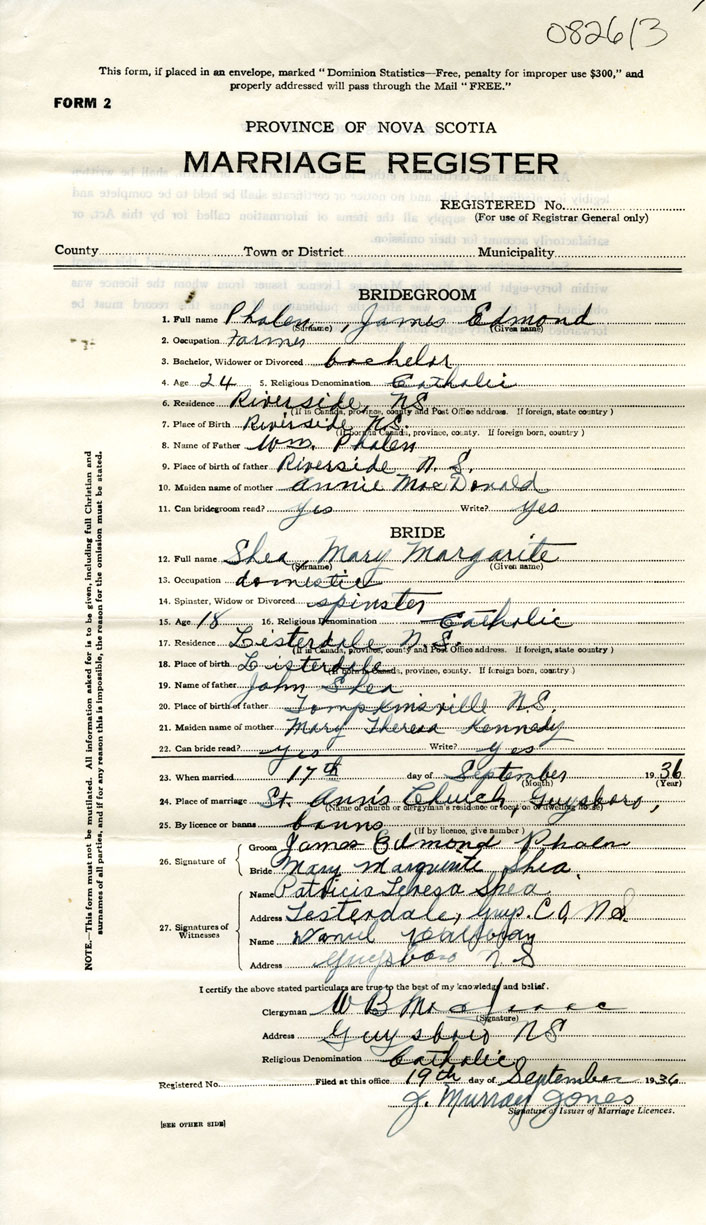 082613
This form, if placed in an envelope, marked "Dominion Statistics—Free, penalty for improper use $300," and
properly addressed will pass through the Mail "FREE."
FORM 2
PROVINCE OF NOVA SCOTIA
MARRIAGE REGISTER
REGISTERED No.
(For use of Registrar General only)
County Town or District Municipality
BRIDEGROOM
1. Full name Phalen, James Edmond
(Surname) (Given name)
2. Occupation Farmer
3. Bachelor, Widower or Divorced bachelor
4. Age 24 5. Religious Denomination Catholic
6. Residence Riverside, NS
(If in Canada, province, county and Post Office address. If foreign, state country)
7. Place of Birth Riverside NS.
(If born in Canada, province, county. If foreign born, country)
8. Name of Father Wm. Phalen
9. Place of birth of father Riverside N.S.
10. Maiden name of mother Annie MacDonald
11. Can bridegroom read? Yes Write? Yes
BRIDE
12. Full name Shea, Mary Margarite
(Surname) (Given name)
13. Occupation domestic
14. Spinster, Widow or Divorced spinster
15. Age 18 16. Religious Denomination Catholic
17. Residence Listerdale N.S.
(If in Canada, province, county and Post Office address. If foreign, state country)
18. Place of birth Listerdale
(If born in Canada, province, county. If foreign born, country)
19. Name of father John Shea
20. Place of birth of father Tompkinsville N.S.
21. Maiden name of mother Mary Theresa Kennedy
22. Can bride read? Yes Write? Yes
23. When married 17th day of September 1936
(Month) (Year)
24. Place of marriage St. Ann's Church, Guysboro,
(Name of church or clergyman's residence or location of dwelling house)
25. By licence or banns banns
(If by licence, give number)
26. Signature of
Groom James Edmond Phalen
Bride Mary Marguerite Shea.
27. Signatures of Witnesses
Name Patricia Teresa Shea
Address Lesterdale, Guys. Co, N.S.
Name
Address Guysboro NS
I certify the above stated particulars are true to the best of my knowledge and belief.
Clergyman W B MacIsaac
(Signature)
Address Guysboro NS
Religious Denomination Catholic
Registered No. Filed at this office 19th day of September 1936
J. Murray Jones
Signature of Issuer of Marriage Licences.
[SEE OTHER SIDE]
NOTE.—This form must not be mutilated. All information asked for is to be given, including full Christian and
surnames of all parties, and if for any reason this is impossible, the reason for the omission must be stated.